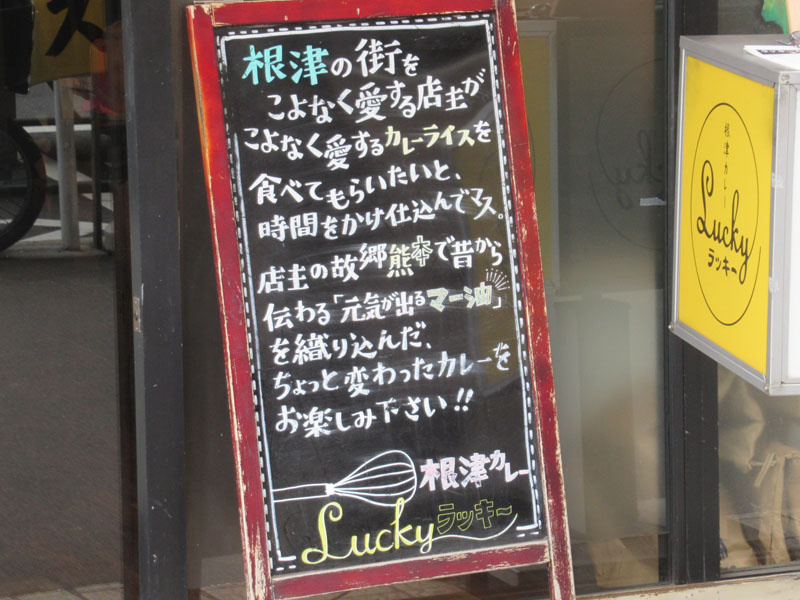 根津の街を
こよなく愛する店主が
こよなく愛するカレーライスを
食べてもらいたいと、
時間をかけ仕込んでマス。
店主の故郷熊本で昔から
伝わる「元気が出るマー油」
を織り込んだ、
ちょっと変わったカレーを
お楽しみ下さい!!
根津カレー
Lucky ラッキー
根津カレー
Lucky
ラッキー
ス